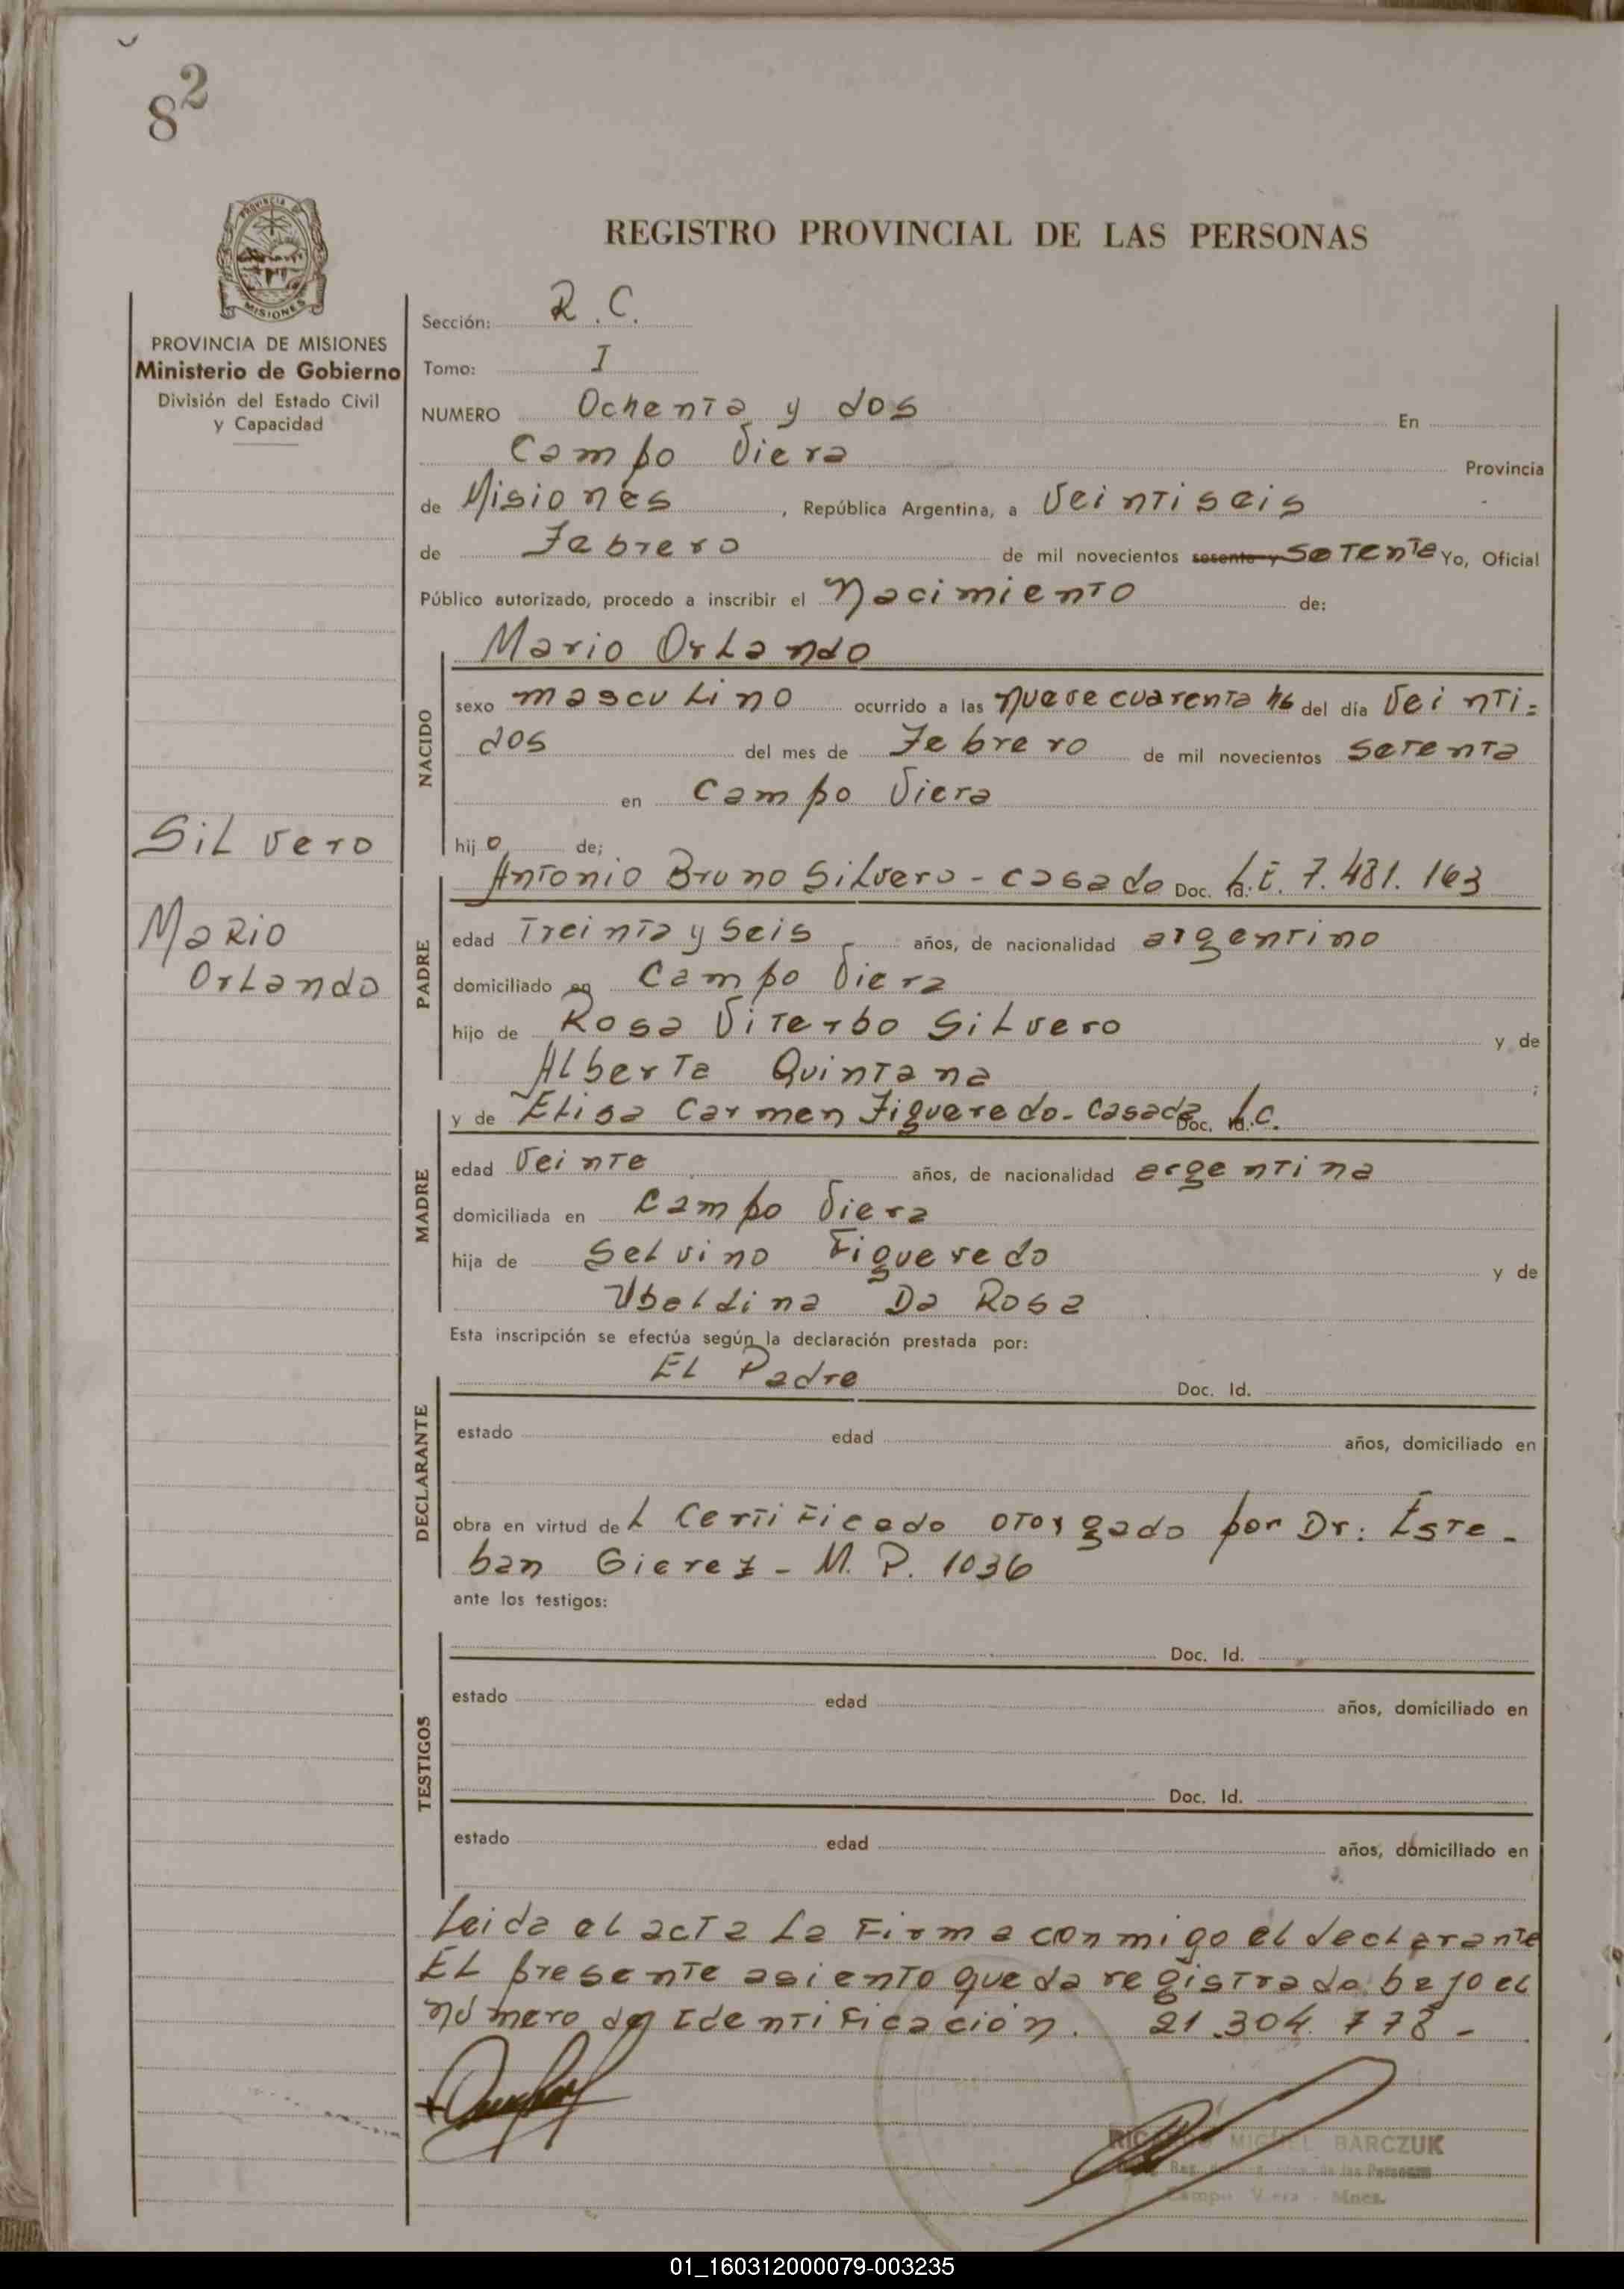 82
REGISTRO PROVINCIAL DE LAS PERSONAS
PROVINCIA DE MISIONES
MISIONES
PROVINCIA DE MISIONES
Ministerio de Gobierno
División del Estado Civil
y Capacidad
Silvero
Mario
Orlando
Sección: R.C.
Tomo: I
NUMERO Ochenta y dos En
Campo Viera Provincia
de Misiones, República Argentina, a Veintiseis
de Febrero de mil novecientos sesenta y Setenta Yo, Oficial
Público autorizado, procedo a inscribir el Nacimiento de:
Mario Orlando
NACIDO
sexo masculino ocurrido a las nueve cuarenta hs del día Veinti=
dos del mes de Febrero de mil novecientos setenta
en Campo Viera
hijo de;
Antonio Bruno Silvero - casado Doc. Id. L.E. 7.481.163
PADRE
edad Treinta y Seis años, de nacionalidad argentino
domiciliado en Campo Viera
hijo de Rosa Viterbo Silvero y de
Alberta Quintana ;
y de Elisa Carmen Figueredo - Casada Doc. Id. L.C.
MADRE
edad Veinte años, de nacionalidad argentina
domiciliada en Campo Viera
hija de Selvino Figueredo y de
Ubaldina Da Rosa
Esta inscripción se efectúa según la declaración prestada por:
El Padre Doc. Id.
DECLARANTE
estado edad años, domiciliado en
obra en virtud del Certificado otorgado por Dr. Este-
ban Gierez - M.P. 1036
ante los testigos:
Doc. Id.
TESTIGOS
estado edad años, domiciliado en
Doc. Id.
estado edad años, domiciliado en
Leida el acta La Firma conmigo el declarante
El presente asiento queda registrado bajo el
número de Identificación. 21.304.778 -
RICARDO MIGUEL BARCZUK
de las Personas
Campo Viera - Mnes.
01_160312000079-003235